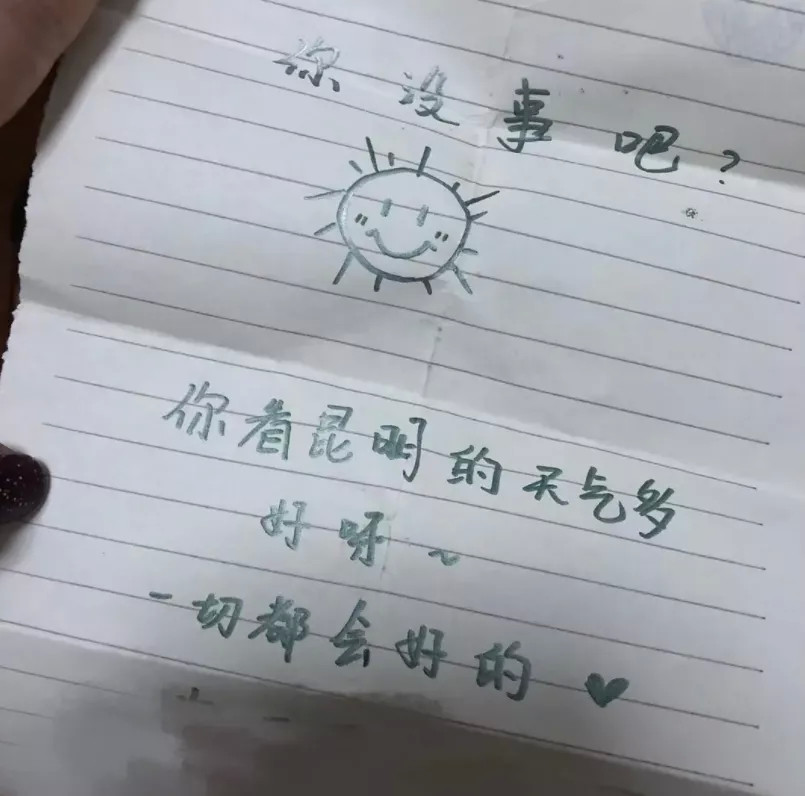 你没事吧？
你看昆明的天气多
好呀～
一切都会好的♥